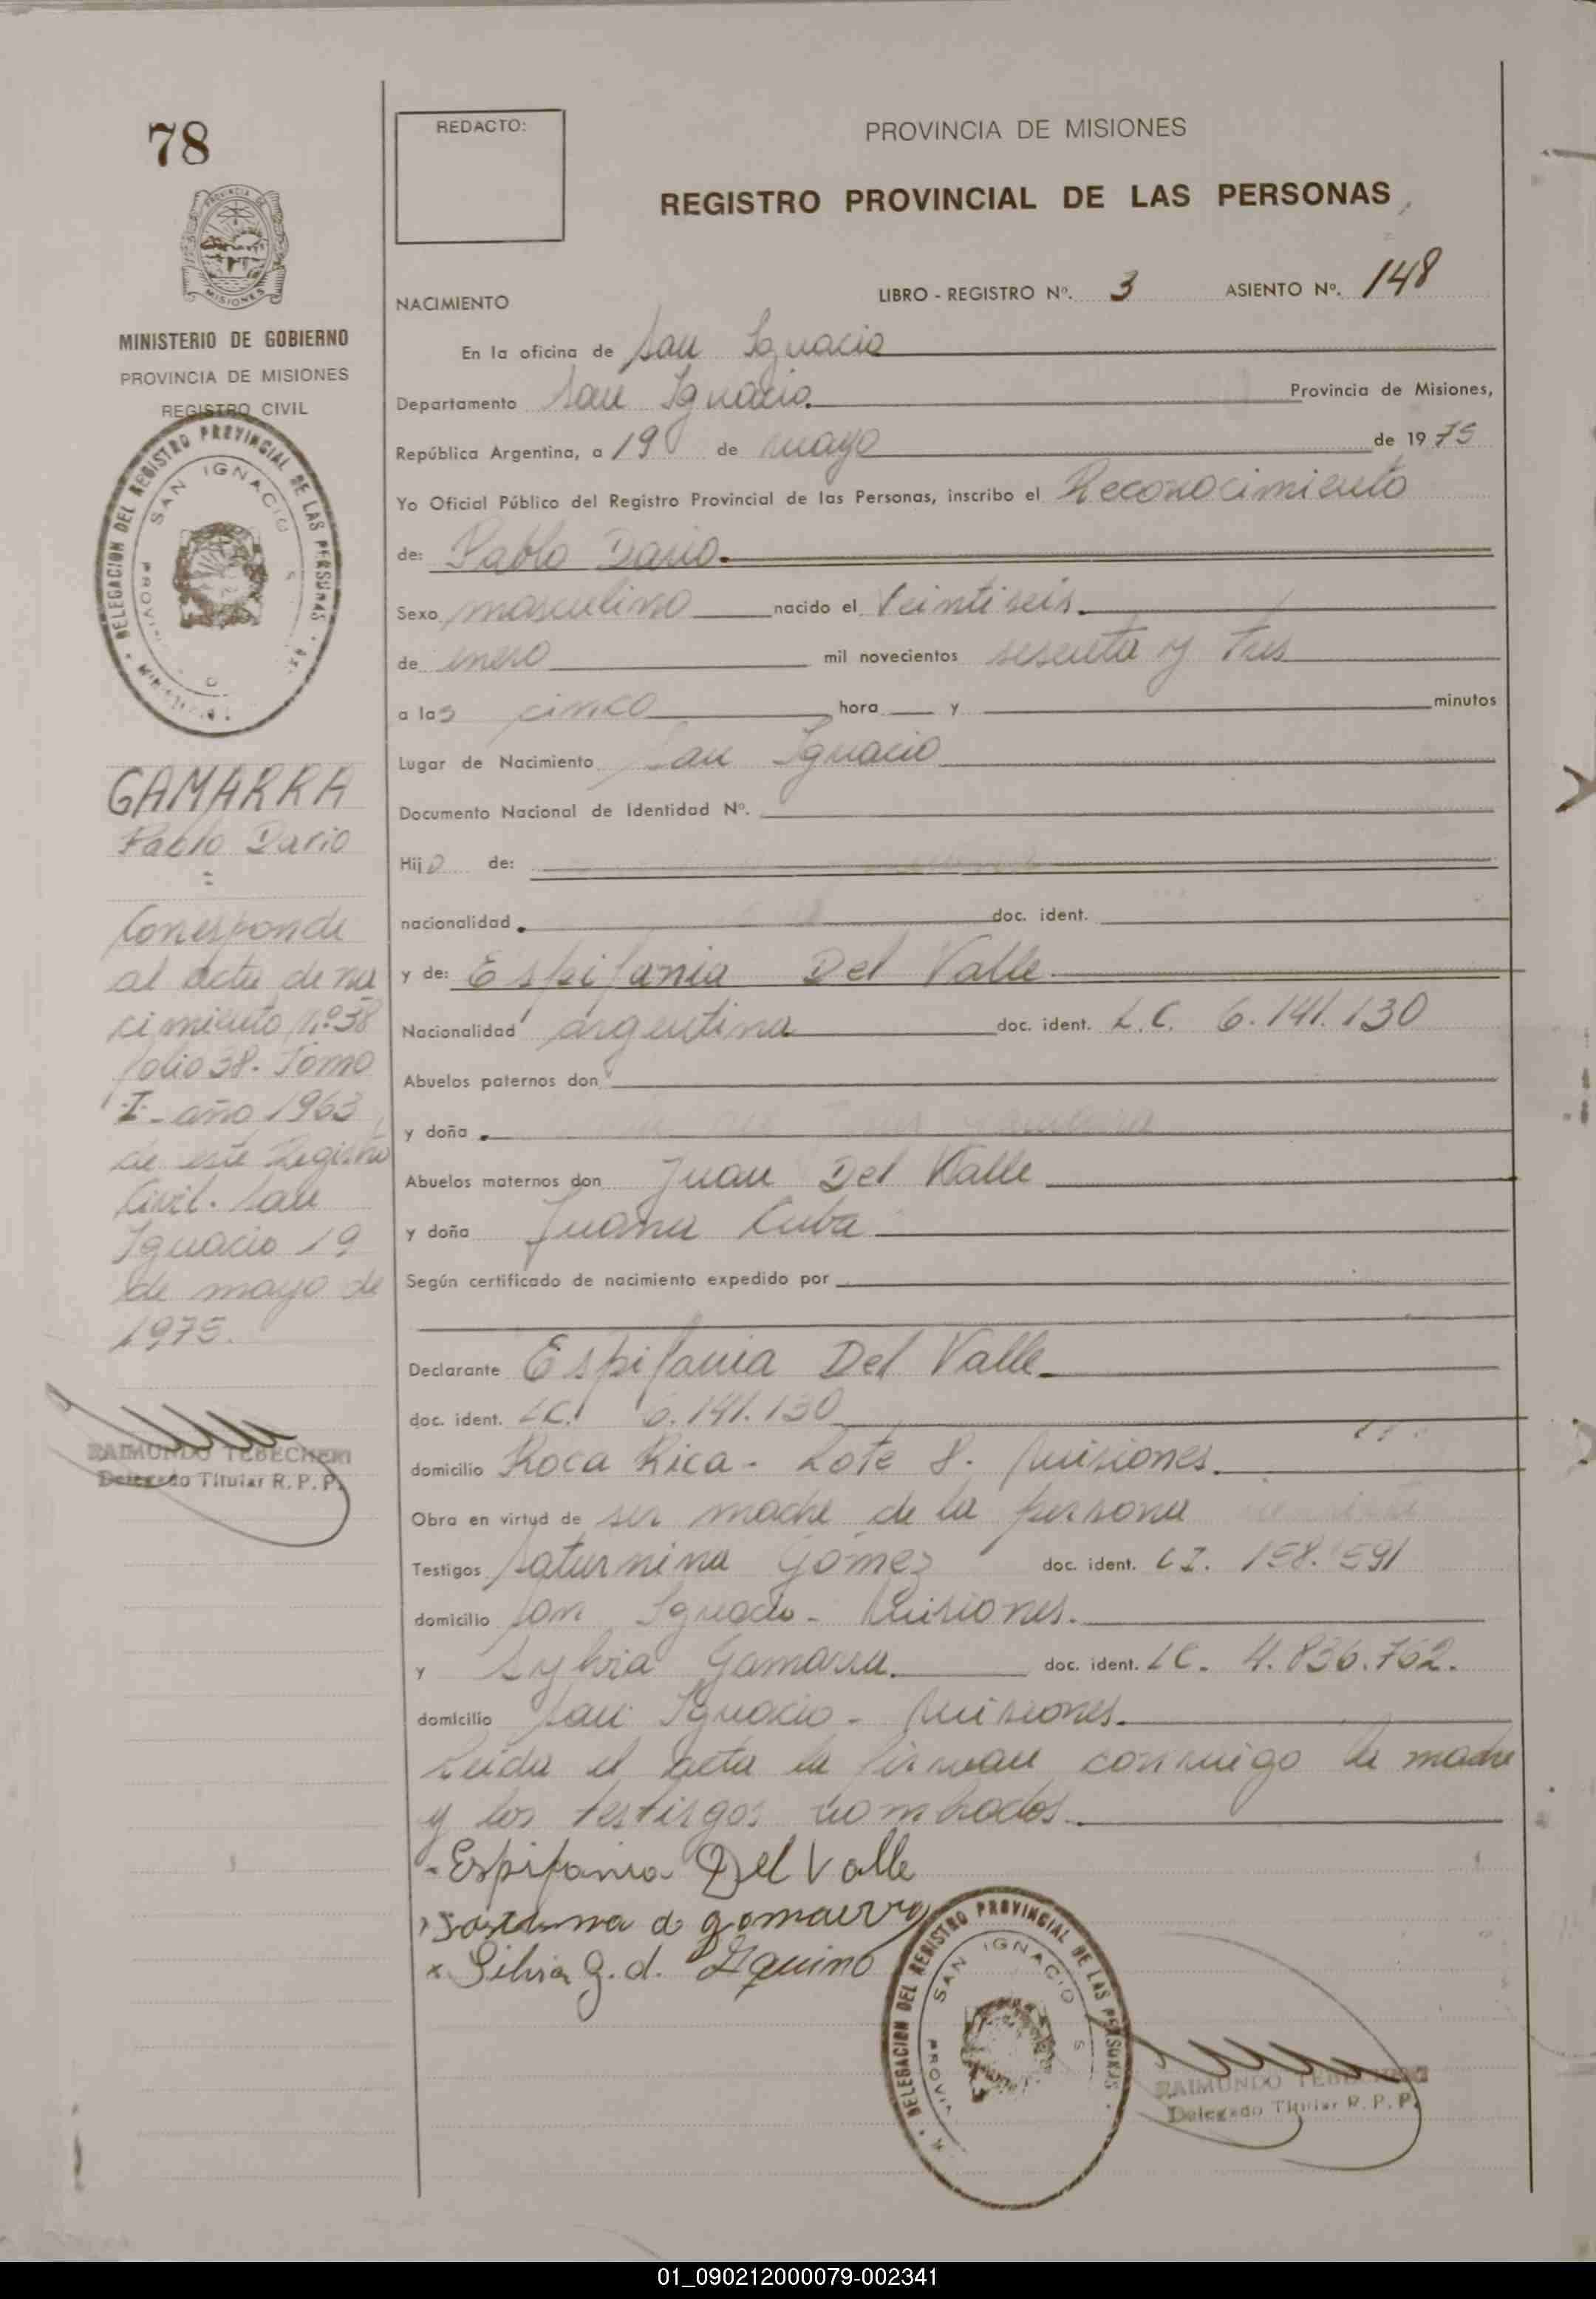 78
MINISTERIO DE GOBIERNO
PROVINCIA DE MISIONES
REGISTRO CIVIL
DELEGACION DEL REGISTRO PROVINCIAL DE LAS PERSONAS
SAN IGNACIO
GAMARRA
Pablo Dario
=
Corresponde
al acta de na
cimiento nº 38
folio 38. Tomo
I - año 1963
de este Registro
Civil. San
Ignacio 19
de mayo de
1975.
RAIMUNDO TEBECHERI
Delegado Titular R. P. P.
REDACTO:
PROVINCIA DE MISIONES
REGISTRO PROVINCIAL DE LAS PERSONAS
NACIMIENTO
LIBRO - REGISTRO Nº. 3 ASIENTO Nº. 148
En la oficina de San Ignacio
Departamento San Ignacio. Provincia de Misiones,
República Argentina, a 19 de mayo de 1975
Yo Oficial Público del Registro Provincial de las Personas, inscribo el Reconocimiento
de: Pablo Dario.
Sexo masculino nacido el Veintiseis.
de enero mil novecientos sesenta y tres
a las cinco hora y minutos
Lugar de Nacimiento San Ignacio
Documento Nacional de Identidad Nº.
Hijo de:
nacionalidad doc. ident.
y de: Espifania Del Valle
Nacionalidad argentina doc. ident. L.C. 6.141.130
Abuelos paternos don
y doña
Abuelos maternos don Juan Del Valle
y doña Juana Cuba
Según certificado de nacimiento expedido por
Declarante Espifania Del Valle
doc. ident. LC. 6.141.130
domicilio Roca Rica - Lote 8. Misiones.
Obra en virtud de ser madre de la persona
Testigos Saturnina Gómez doc. ident. C I. 158.591
domicilio San Ignacio - Misiones.
y Sylvia Gamarra. doc. ident. LC. 4.836.762.
domicilio San Ignacio - Misiones.
Leida el acta la firman conmigo la madre
y los testigos nombrados.
- Espifania Del Valle
de gomarra
x Silvia g. d. Aquino
DELEGACION DEL REGISTRO PROVINCIAL DE LAS PERSONAS
SAN IGNACIO
RAIMUNDO TEBECHERI
Delegado Titular R. P. P.
01_090212000079-002341